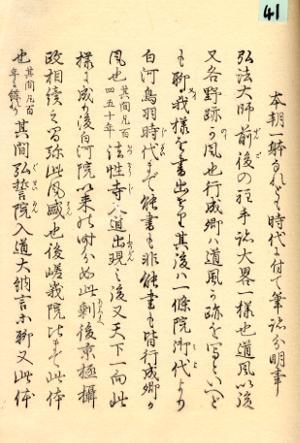 41
本朝一躰なれども時代に付て筆跡分明事
弘法大師前後の 手跡大畧一様也道風以後
又各野跡の風也行成卿ハ道風が跡を写といへど
も聊我様を書出せり其後ハ一條院御代より
白河鳥羽時代まで能書も非能書も皆行成卿が
風也其間凡百四五十年法性寺入道出現之後又天下一向此
様に成て後白河院以来の時分如此剰後京極攝
政相續之間弥此風盛也後嵯峨院比まで此体
也其間凡百年餘歟其間弘誓院入道大納言等聊又此体